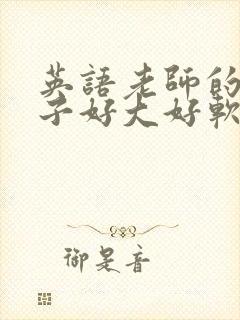 英語老師的
子好大好軟
御是音